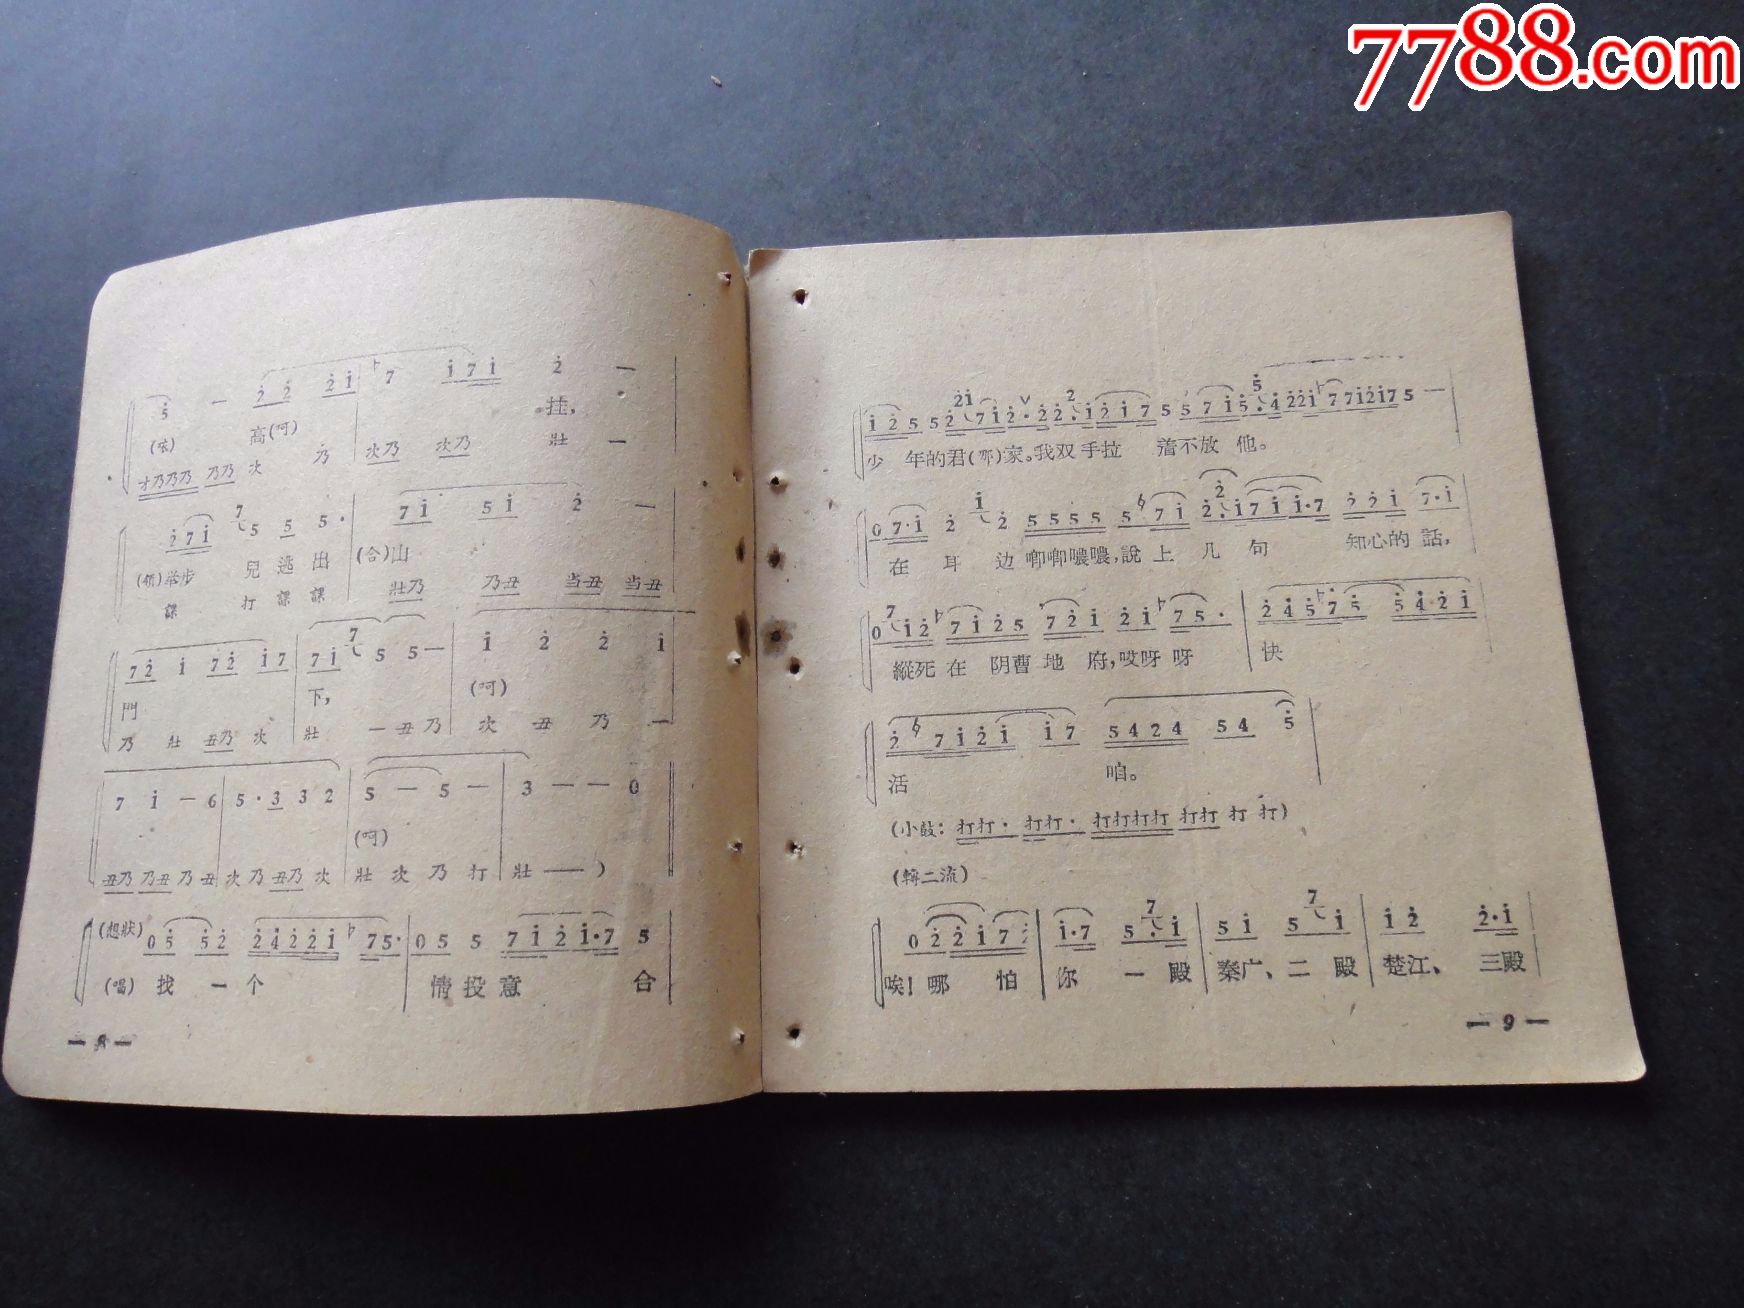 7788.com
5̇ — 2̇ 2̇ 2̇ 1̇ 7 1̇ 7 1̇ 2̇ —
(咳) 高(呵) 挂,
才乃乃乃 乃乃 次 乃 次乃 次乃 壯 —
2̇ 7 1̇ 7 5 5 5 · 7 1̇ 5 1̇ 2̇ —
(領)举步 兒 逃 出 (合)山
課 打 課 課 壯乃 乃丑 当丑 当丑
7 2̇ 1̇ 7 2̇ 1̇ 7 7 1̇ 7 5 5 — 1̇ 2̇ 2̇ 1̇
門 下, (呵)
乃 壯 丑乃 次 壯 — 丑 乃 次 丑 乃 —
7 1̇ — 6 5 · 3 3 2 5 — 5 — 3 — — 0
(呵)
丑乃 乃丑 乃 丑 次 乃 丑乃 次 壯 次 乃 打 壯 — — )
(想狀) 0 5̇ 5̇ 2̇ 2̇ 4̇ 2̇ 2̇ 1̇ 7 5 · 0 5 5 7 1̇ 2̇ 1̇ · 7 5
(唱) 找 一 个 情 投 意 合
— 8 —
少 年的君(哪)家。我双手拉 着不放 他。
0 7 · 1̇ 2̇ 1̇ 2̇ 5 5 5 5 5 7 1̇ 2̇ 2̇ · 1̇ 7 1̇ 1̇ · 7 2̇ 2̇ 1̇ 7 · 1̇
在 耳 边 唧唧噥噥,說 上 几 句 知心的 話,
0 7 1̇ 2̇ 7 1̇ 2̇ 5 7 2̇ 1̇ 2̇ 1̇ 7 5 · 2̇ 4̇ 5̇ 7̇ 5̇ 5̇ 4̇ · 2̇ 1̇
縱死 在 阴曹 地 府,哎呀 呀 快
2̇ 7 1̇ 2̇ 1̇ 1̇ 7 5 4 2 4 5 4 5̇
活 咱。
(小鼓: 打打 · 打打 · 打打打打 打打 打 打)
(轉二流)
0 2̇ 2̇ 1̇ 7 2̇ 1̇ · 7 5 7 · 1̇ 5 1̇ 5 7 1̇ 1̇ 2̇ 2̇ · 1̇
唉! 哪 怕 你 一 殿 秦广、二 殿 楚江、 三殿
— 9 —